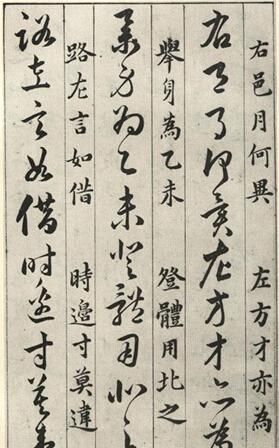 右邑月何異 左方才亦為
右邑月何異左方才亦為
舉身為乙未 登體用北之
舉身為乙未登體用北之
路左言如借 時邊寸莫違
路左言如借時邊寸莫